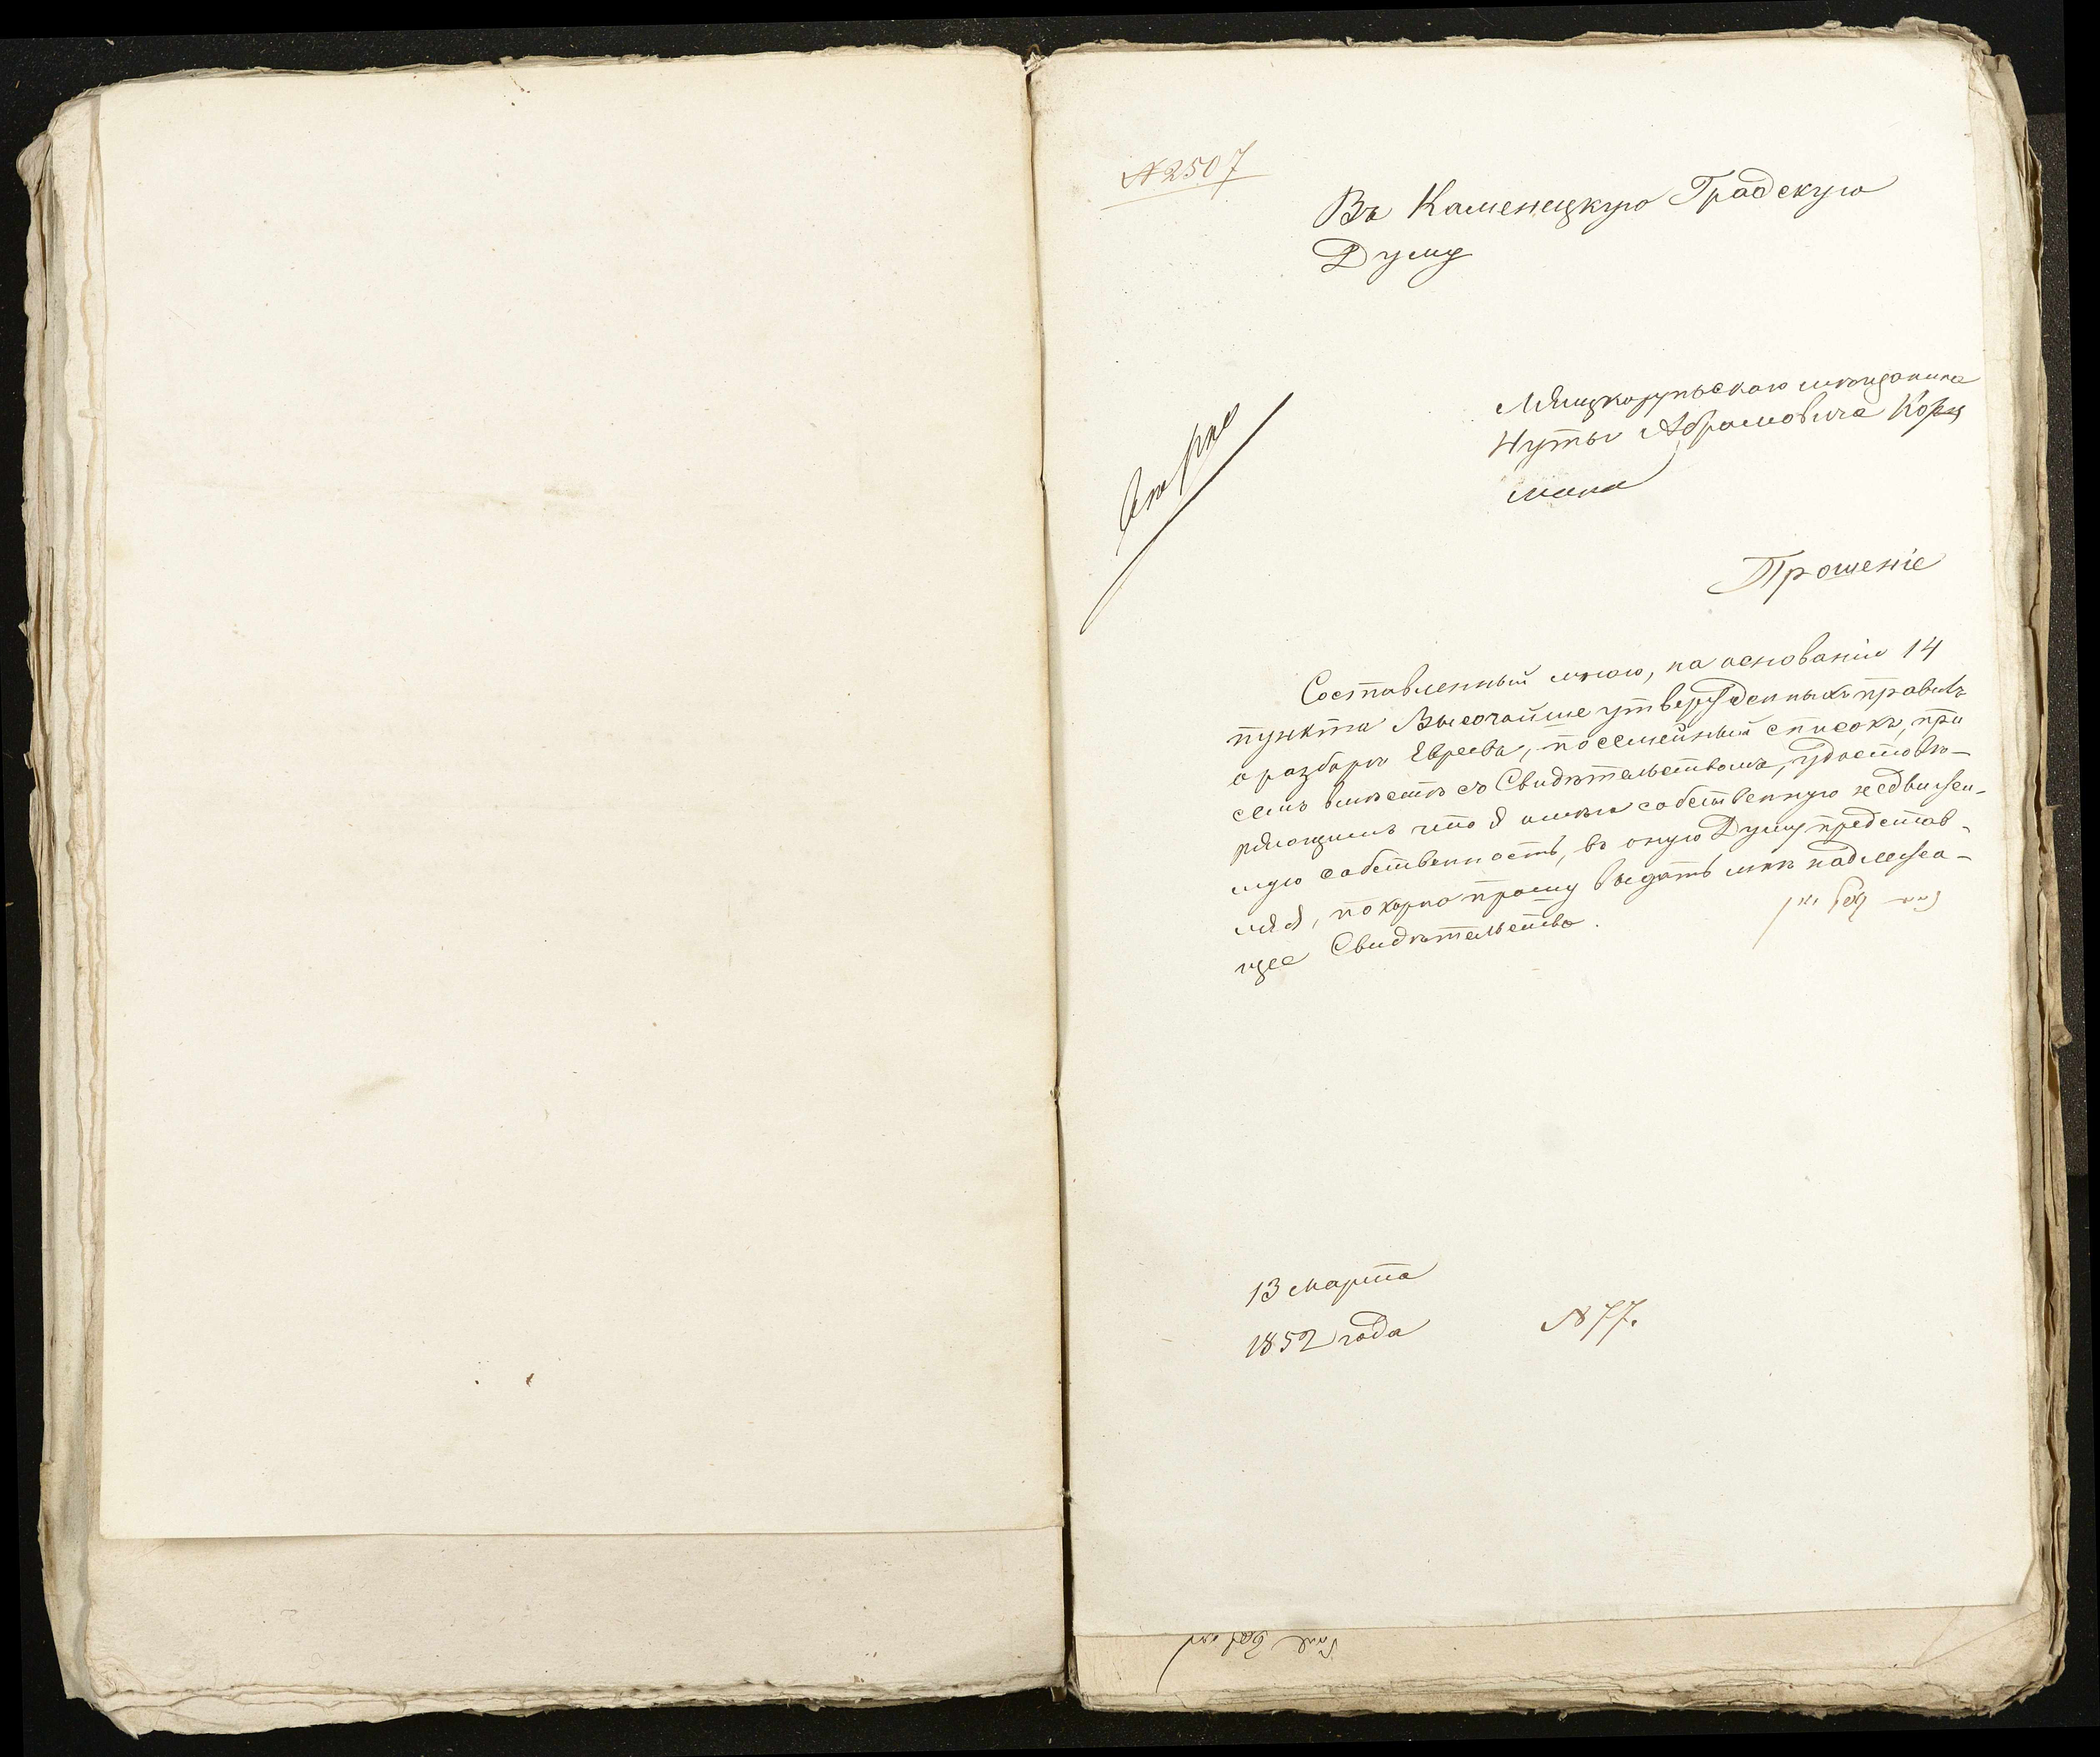 № 2507
Въ Каменецкую Градскую
Думу
Ляцкоруньскаго мѣщанина
Нуты Абрамовича Корц
мана
Прошеніе
Составленный мною, на основаніи 14
пункта Высочайше утвержденныхъ правилъ
о разборѣ Евреевъ, посемейный списокъ, при
семъ вмѣстѣ съ Свидѣтельствомъ, удостовѣ-
ряющимъ что я имѣю собственную недвижи-
мую собственность, въ оную Думу представ-
ляя, покорно прошу выдать мнѣ надлежа-
щее Свидѣтельство.
13 марта
1852 года
№ 77.